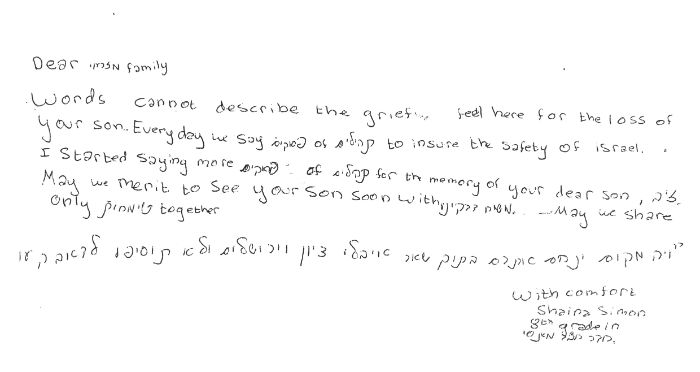 Dear מזרחי family
Words cannot describe the grief feel here for the loss of
your son. Everyday we say פסוקים of תהלים to insure the safety of israel.
I started saying more פסוקים of תהלים for the memory of your dear son,
May we merit to see your son soon with משיח May we share
only together
מקום ינחם בתוך שאר ציון וירושלים ולא תוסיפו
With comfort
Shaina Simon
8th grade in